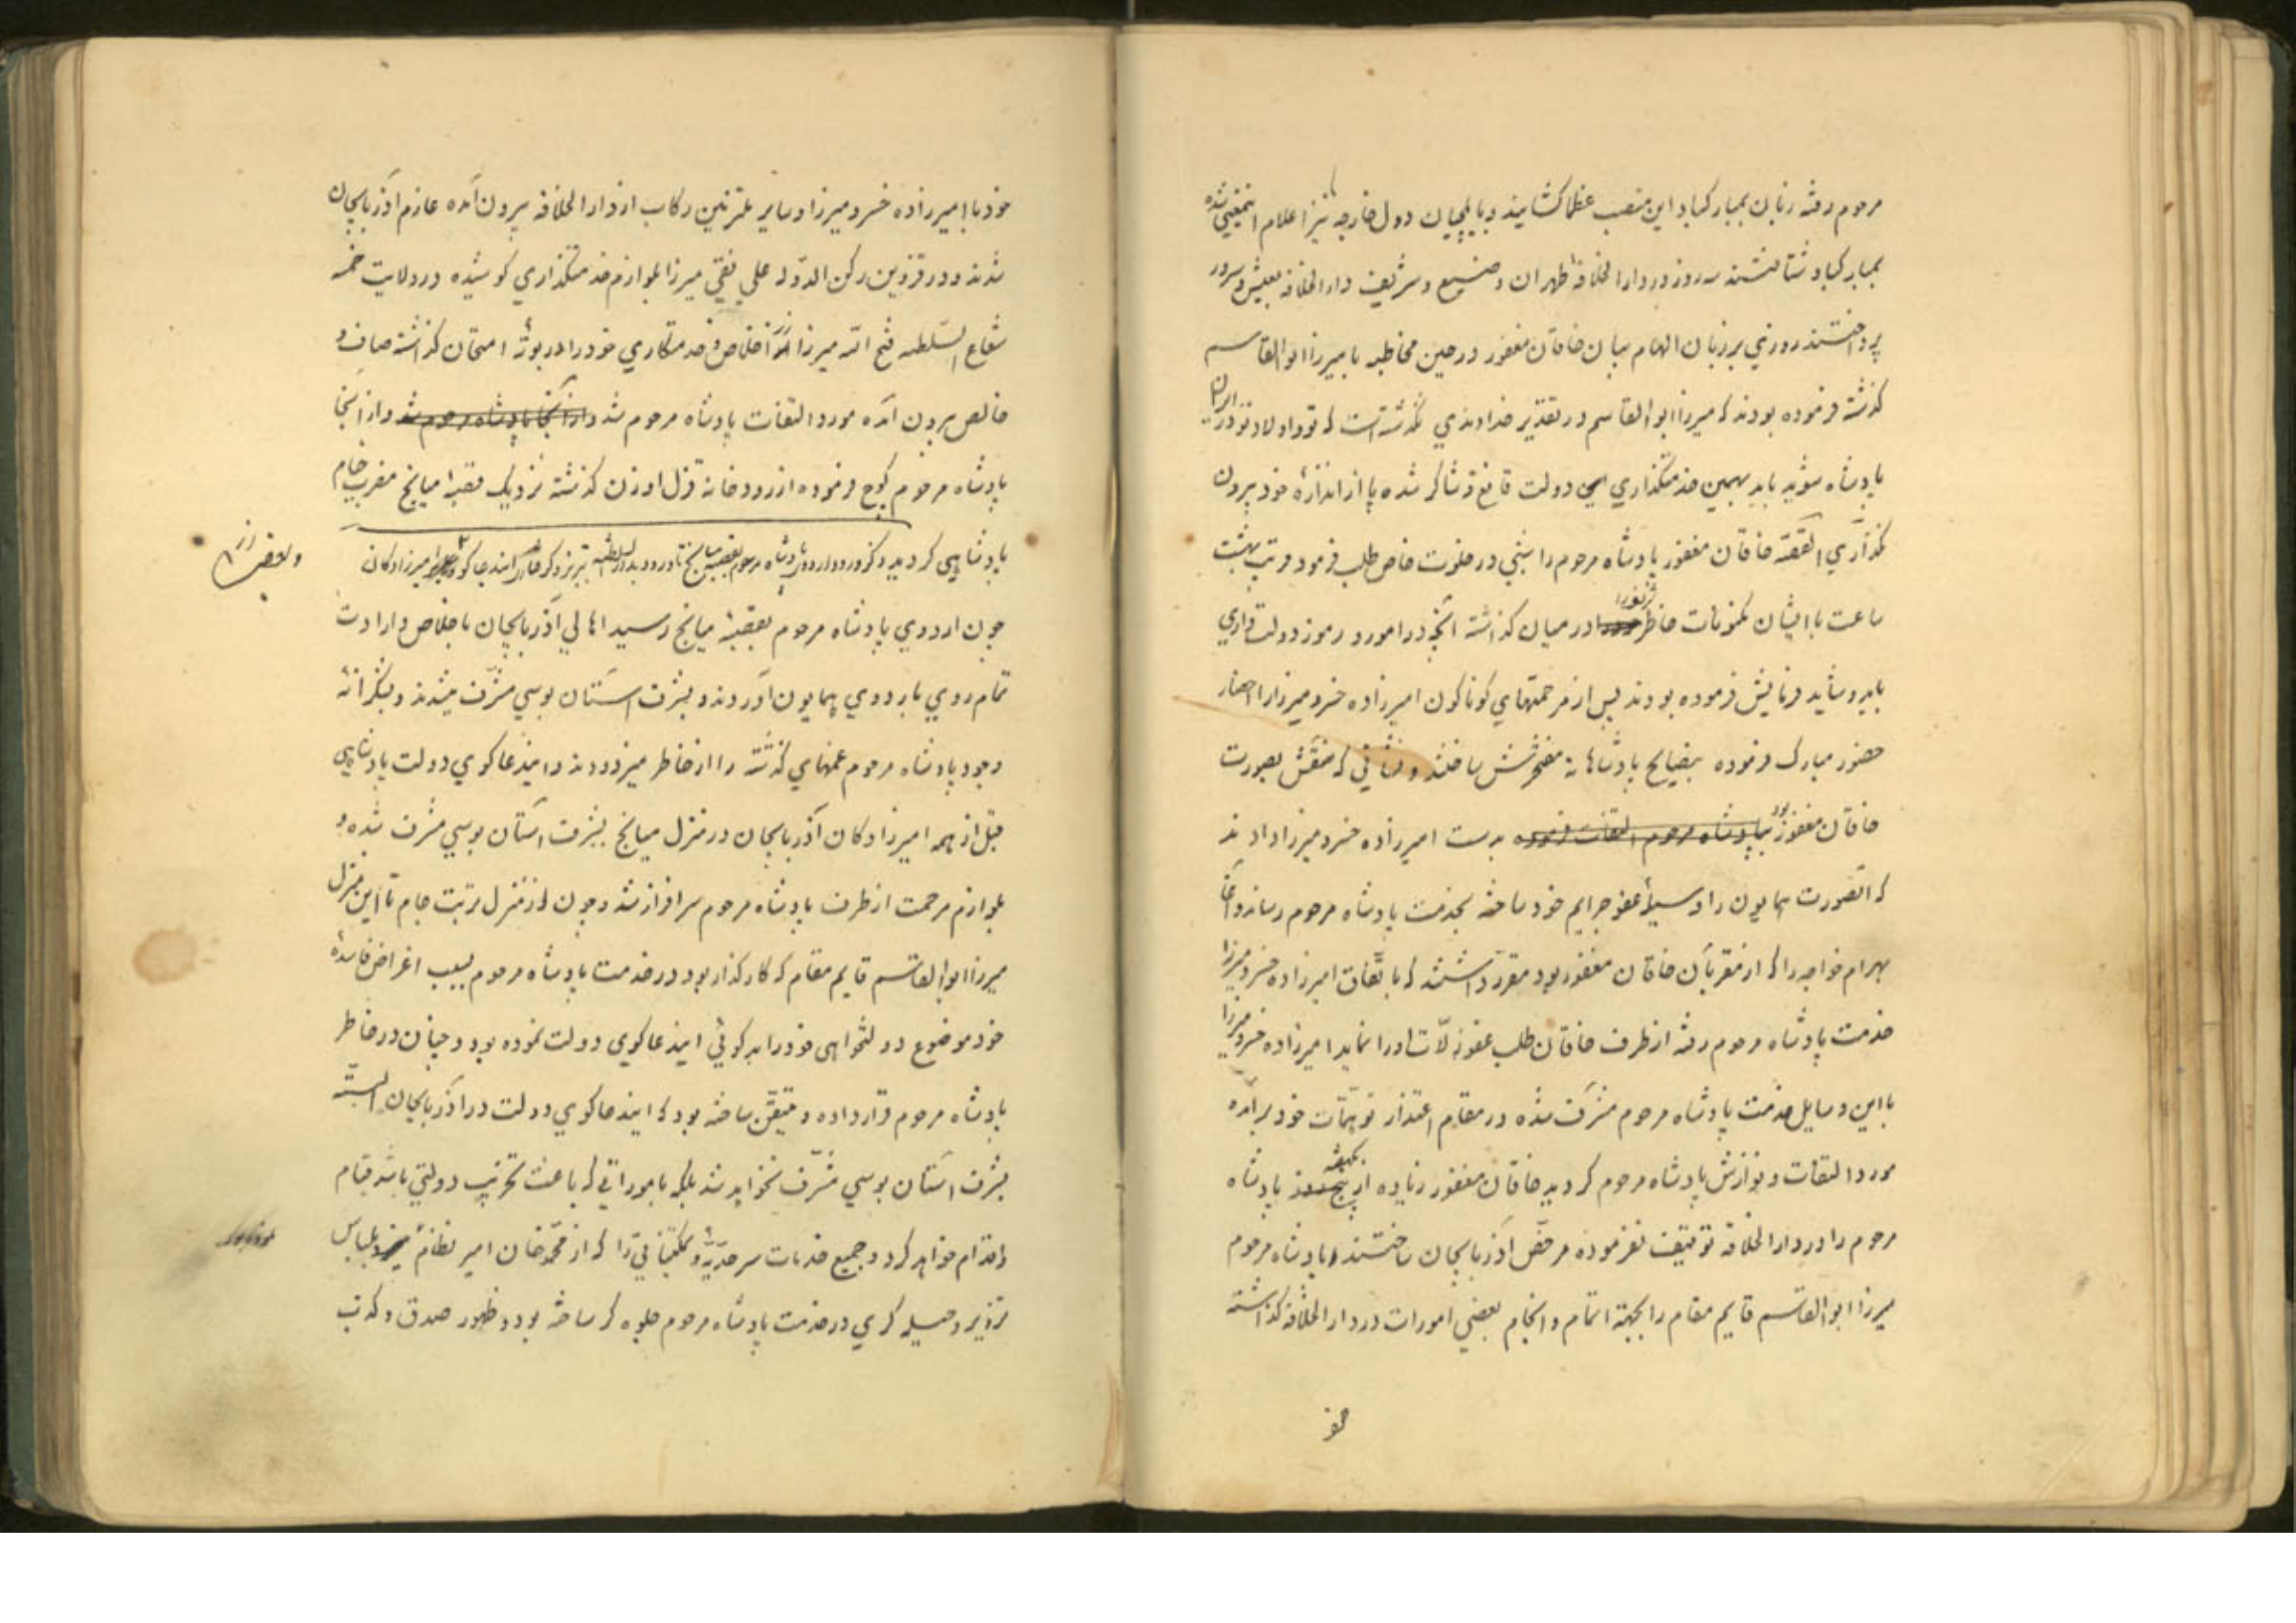 مرحوم رفته زبان بمبارکباد این منصب عظما کشایند و بایلچیان دول خارجه نیز اعلام اینمعنی شده
بمبارکباد شتافتند سه روز در دارالخلافه طهران وضیع و شریف دارالخلافه بعیش و سرور
پرداختند روزی بر زبان الهام بیان خاقان مغفور در حین مخاطبه با میرزا ابوالقاسم
گذشته فرموده بودند که میرزا ابوالقاسم در تقدیر خداوندی نگذشته است که تو و اولاد تو در ایران
پادشاه شوید باید بهمین خدمتگذاری این دولت قانع و شاکر شده پا از اندازهٔ خود بیرون
نگذاری القصّه خاقان مغفور پادشاه مرحوم را شبی در خلوت خاص طلب فرموده قریب بهشت
ساعت با ایشان مکنونات خاطر خود را در میان گذاشته آنچه در امور و رموز دولت داری
باید و شاید فرمایش فرموده بودند پس از مرحمتهای کوناکون امیرزاده خسرو میرزا را احضار
حضور مبارک فرموده بنصایح پادشاهانه مفتخرش ساختند و نشانی که منقش بصورت
خاقان مغفور بود پادشاه مرحوم التفات فرموده بدست امیرزاده خسرو میرزا دادند
که آنصورت همایون را وسیلهٔ عفو جرایم خود ساخته بخدمت پادشاه مرحوم رساند و آغا
بهرام خواجه را که از مقربان خاقان مغفور بود مقرر داشتند که باتفاق امیرزاده خسرو میرزا
خدمت پادشاه مرحوم رفته از طرف خاقان طلب عفو زلّات او را نماید امیرزاده خسرو میرزا
با این وسایل خدمت پادشاه مرحوم مشرف شده در مقام اعتذار توهمات خود برآمده
مورد التفات و نوازش پادشاه مرحوم گردید خاقان مغفور زیاده از یکهفته پادشاه
مرحوم را در دارالخلافه توقیف نفرموده مرخص آذربایجان ساختند و پادشاه مرحوم
میرزا ابوالقاسم قایم مقام را بجهة اتمام و انجام بعضی امورات در دارالخلافه گذاشته
خود
خود با امیرزاده خسرو میرزا و سایر ملتزمین رکاب از دارالخلافه بیرون آمده عازم آذربایجان
شدند و در قزوین رکن الدوله علی نقی میرزا بلوازم خدمتگذاری کوشیده در ولایت خمسه
شعاع السلطنه فتح الله میرزا اخلاص و خدمتکاری خود را در بوتهٔ امتحان گذاشته صاف و
خالص بیرون آمده مورد التفات پادشاه مرحوم شد و از آنجا پادشاه مرحوم شد و از آنجا
پادشاه مرحوم کوچ فرموده از رودخانه قزل اوزن گذشته نزدیک قصبهٔ میانج مضرب خیام
پادشاهی گردید ذکر ورود اردوی پادشاه مرحوم بقصبه میانج تا ورود بدارالسلطنه تبریز و ذکر فدا کار ایندعاکو و امیرزادکان
و بعضی از
چون اردوی پادشاه مرحوم بقصبهٔ میانج رسید اهالی آذربایجان باخلاص و ارادت
تمام روی باردوی همایون آوردند و بشرف آستان بوسی مشرّف میشدند و بشکرانهٔ
وجود پادشاه مرحوم غمهای گذشته را از خاطر میزدودند و ایندعاکوی دولت پادشاهی
قبل از همه امیرزادکان آذربایجان در منزل میانج بشرف آستان بوسی مشرف شده و
بلوازم مرحمت از طرف پادشاه مرحوم سرافراز شد و چون که از منزل تربت جام تا این منزل
میرزا ابوالقاسم قایم مقام که کارگذار بود در خدمت پادشاه مرحوم بسبب اغراض فاسدهٔ
خود موضوع دولتخواهی خود را بدکوئی ایندعاکوی دولت نموده بود و چنان در خاطر
پادشاه مرحوم قرار داده و متیقن ساخته بود که ایندعاکوی دولت در آذربایجان البتّه
بشرف آستان بوسی مشرّف نخواهد شد بلکه باموراتی که باعث تخریب دولتی باشد قیام
و اقدام خواهد کرد و جمیع خدمات سرحدّیه و مملکتبانی را که از محمدخان امیر نظام بلباس
تزویر و حیله کری در خدمت پادشاه مرحوم جلوه گر ساخته بود و ظهور صدق و کذب